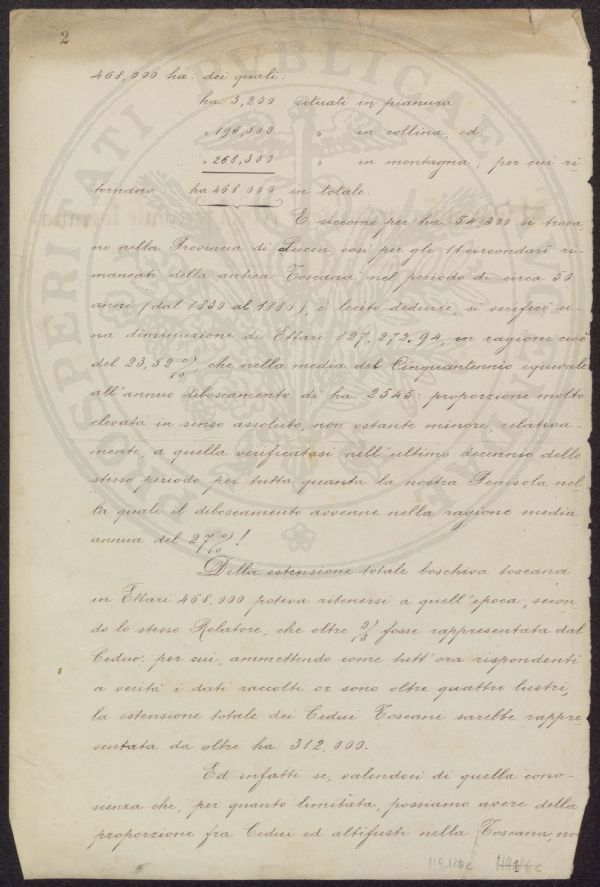 2
468,000 ha. dei quali:
ha. 3,200 situati in pianura
„ 196,500 „ in collina, ed
„ 268,300 „ in montagna; per cui ri-
tornano ha 468 000 in totale.
E siccome per ha. 54,300 si trova
no nella Provincia di Lucca, così per gli 11 circondarî ri-
manenti della antica Toscana, nel periodo di circa 50
anni (dal 1830 al 1880), è lecito dedurre, si verificò u-
na diminuzione di Ettari 127,272.94, in ragione cioè
del 23,52 %, che nella media del Cinquantennio equivale
all'annuo diboscamento di ha 2545: proporzione molto
elevata in senso assoluto, non ostante minore, relativa-
mente, a quella verificatasi nell'ultimo decennio dello
stesso periodo per tutta quanta la nostra Penisola nel-
la quale il diboscamento avvenne nella ragione media
annua del 27 %!
Della estensione totale boschiva toscana
in Ettari 468,000 poteva ritenersi a quell'epoca, secon-
do lo stesso Relatore, che oltre 2/3 fosse rappresentata dal
Ceduo; per cui, ammettendo come tutt'ora rispondenti
a verità i dati raccolti or sono oltre quattro lustri,
la estensione totale dei Cedui Toscani sarebbe rappre
sentata da oltre ha 312,000.
Ed infatti se, valendoci di quella cono-
scenza che, per quanto limitata, possiamo avere della
proporzione fra Cedui ed altifusti nella Toscana, no
PROSPERITATI PUBLICAE